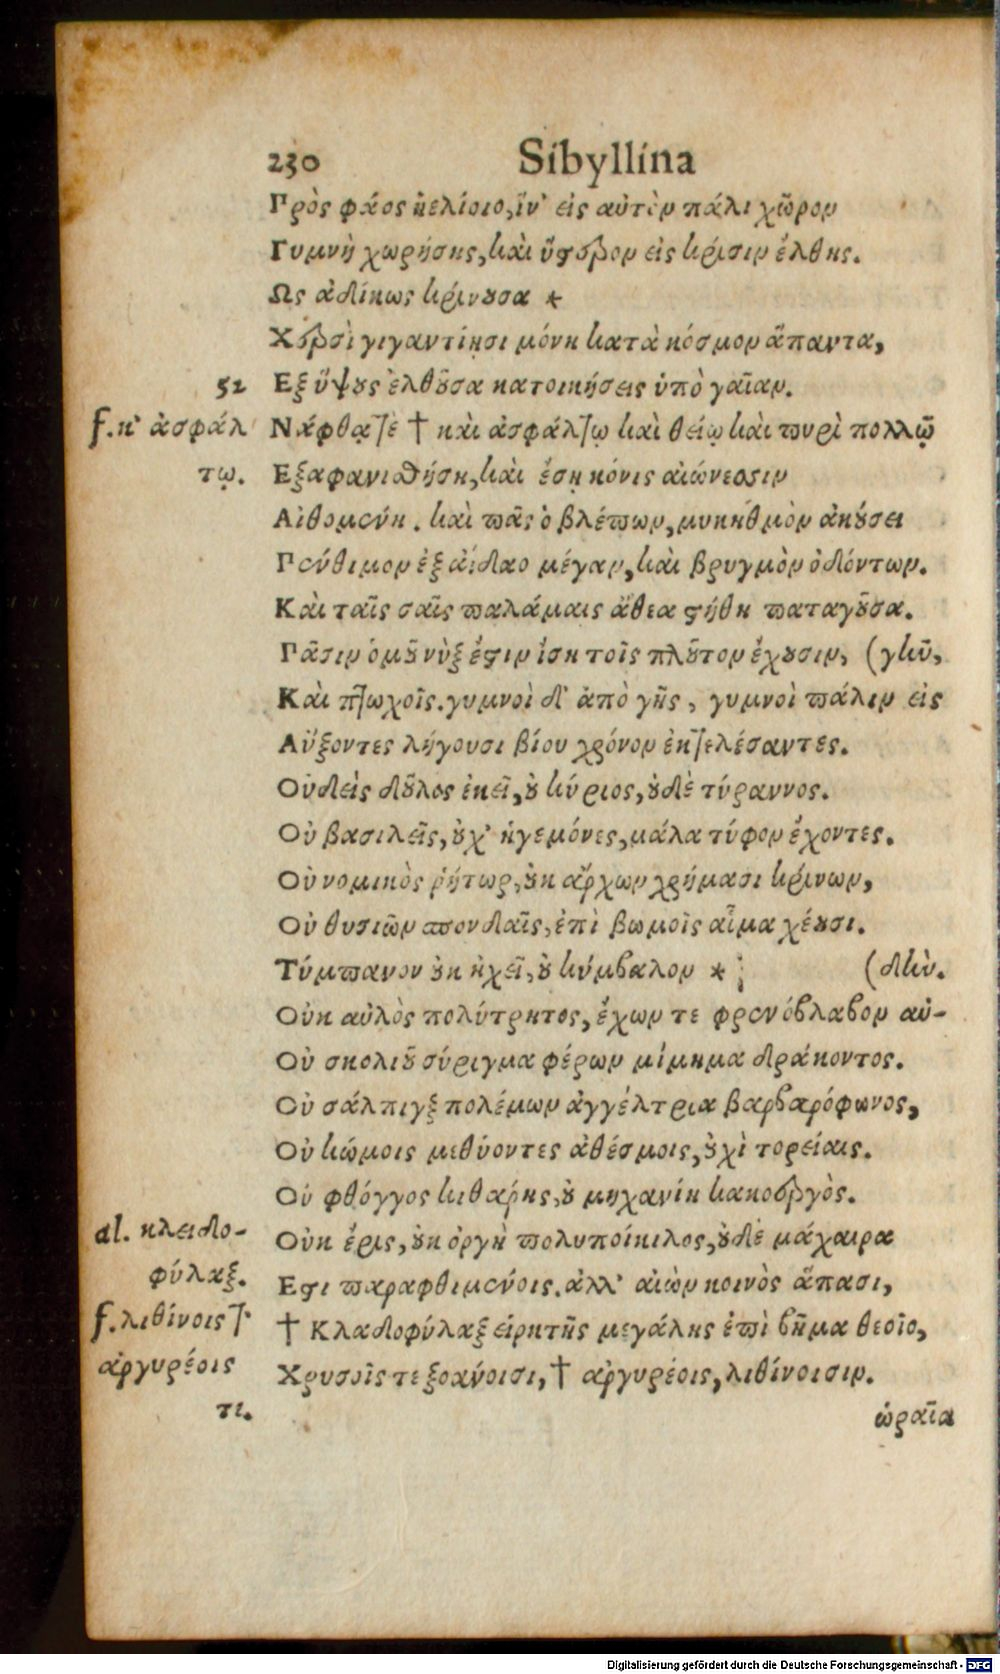 230 Sibyllina
Πρὸς φάος ἠελίοιο, ἵν' εἰς αὐτὸν πάλι χῶρον
Γυμνὴ χωρήσῃς, καὶ ὕστερον εἰς κρίσιν ἔλθῃς.
Ως ἀδίκως κρίνουσα *
Χερσὶ γιγαντίῃσι μόνη κατὰ κόσμον ἅπαντα,
52 Εξ ὕψους ἐλθοῦσα κατοικήσεις ὑπὸ γαῖαν.
f. κ' ἀσφάλ Νάφθᾳ τὲ † καὶ ἀσφάλτῳ καὶ θείῳ καὶ πυρὶ πολλῷ
τῳ. Εξαφανισθήσῃ, καὶ ἔσῃ κόνις αἰώνεσσιν
Αἰθομένη. καὶ πᾶς ὁ βλέπων, μυκηθμὸν ἀκούσει
Πένθιμον ἐξ ἀΐδαο μέγαν, καὶ βρυγμὸν ὀδόντων.
Καὶ ταῖς σαῖς παλάμαις ἄθεα στήθη παταγοῦσα.
Πᾶσιν ὁμοῦ νὺξ ἔστιν ἴση τοῖς πλοῦτον ἔχουσιν, (γῆν,
Καὶ πτωχοῖς. γυμνοὶ δ' ἀπὸ γῆς, γυμνοὶ πάλιν εἰς
Αὔξοντες λήγουσι βίου χρόνον ἐκτελέσαντες.
Οὐδεὶς δοῦλος ἐκεῖ, οὐ κύριος, οὐδὲ τύραννος.
Οὐ βασιλεῖς, οὐχ' ἡγεμόνες, μάλα τύφον ἔχοντες.
Οὐ νομικὸς ῥήτωρ, οὐκ ἄρχων χρήμασι κρίνων,
Οὐ θυσιῶν σπονδαῖς, ἐπὶ βωμοῖς αἷμα χέουσι.
Τύμπανον οὐκ ἠχεῖ, οὐ κύμβαλον * ; (δὴν.
Οὐκ αὐλὸς πολύτρητος, ἔχων τε φρενόβλαβον αὐ-
Οὐ σκολιοῦ σύριγμα φέρων μίμημα δράκοντος.
Οὐ σάλπιγξ πολέμων ἀγγέλτρια βαρβαρόφωνος,
Οὐ κώμοις μεθύοντες ἀθέσμοις, οὐχὶ τορείαις.
Οὐ φθόγγος κιθάρης, οὐ μηχανίη κακοεργὸς.
al. κλειδο- Οὐκ ἔρις, οὐκ ὀργὴ πολυποίκιλος, οὐδὲ μάχαιρα
φύλαξ. Εστι παραφθιμένοις. ἀλλ' αἰὼν κοινὸς ἅπασι,
f. λιθίνοις τ' † Κλαδοφύλαξ εἱρκτῆς μεγάλης ἐπὶ βῆμα θεοῖο,
ἀργυρέοις Χρυσοῖς τε ξοάνοισι, † ἀργυρέοις, λιθίνοισιν.
τι. ὡραῖα
Digitalisierung gefördert durch die Deutsche Forschungsgemeinschaft - DFG